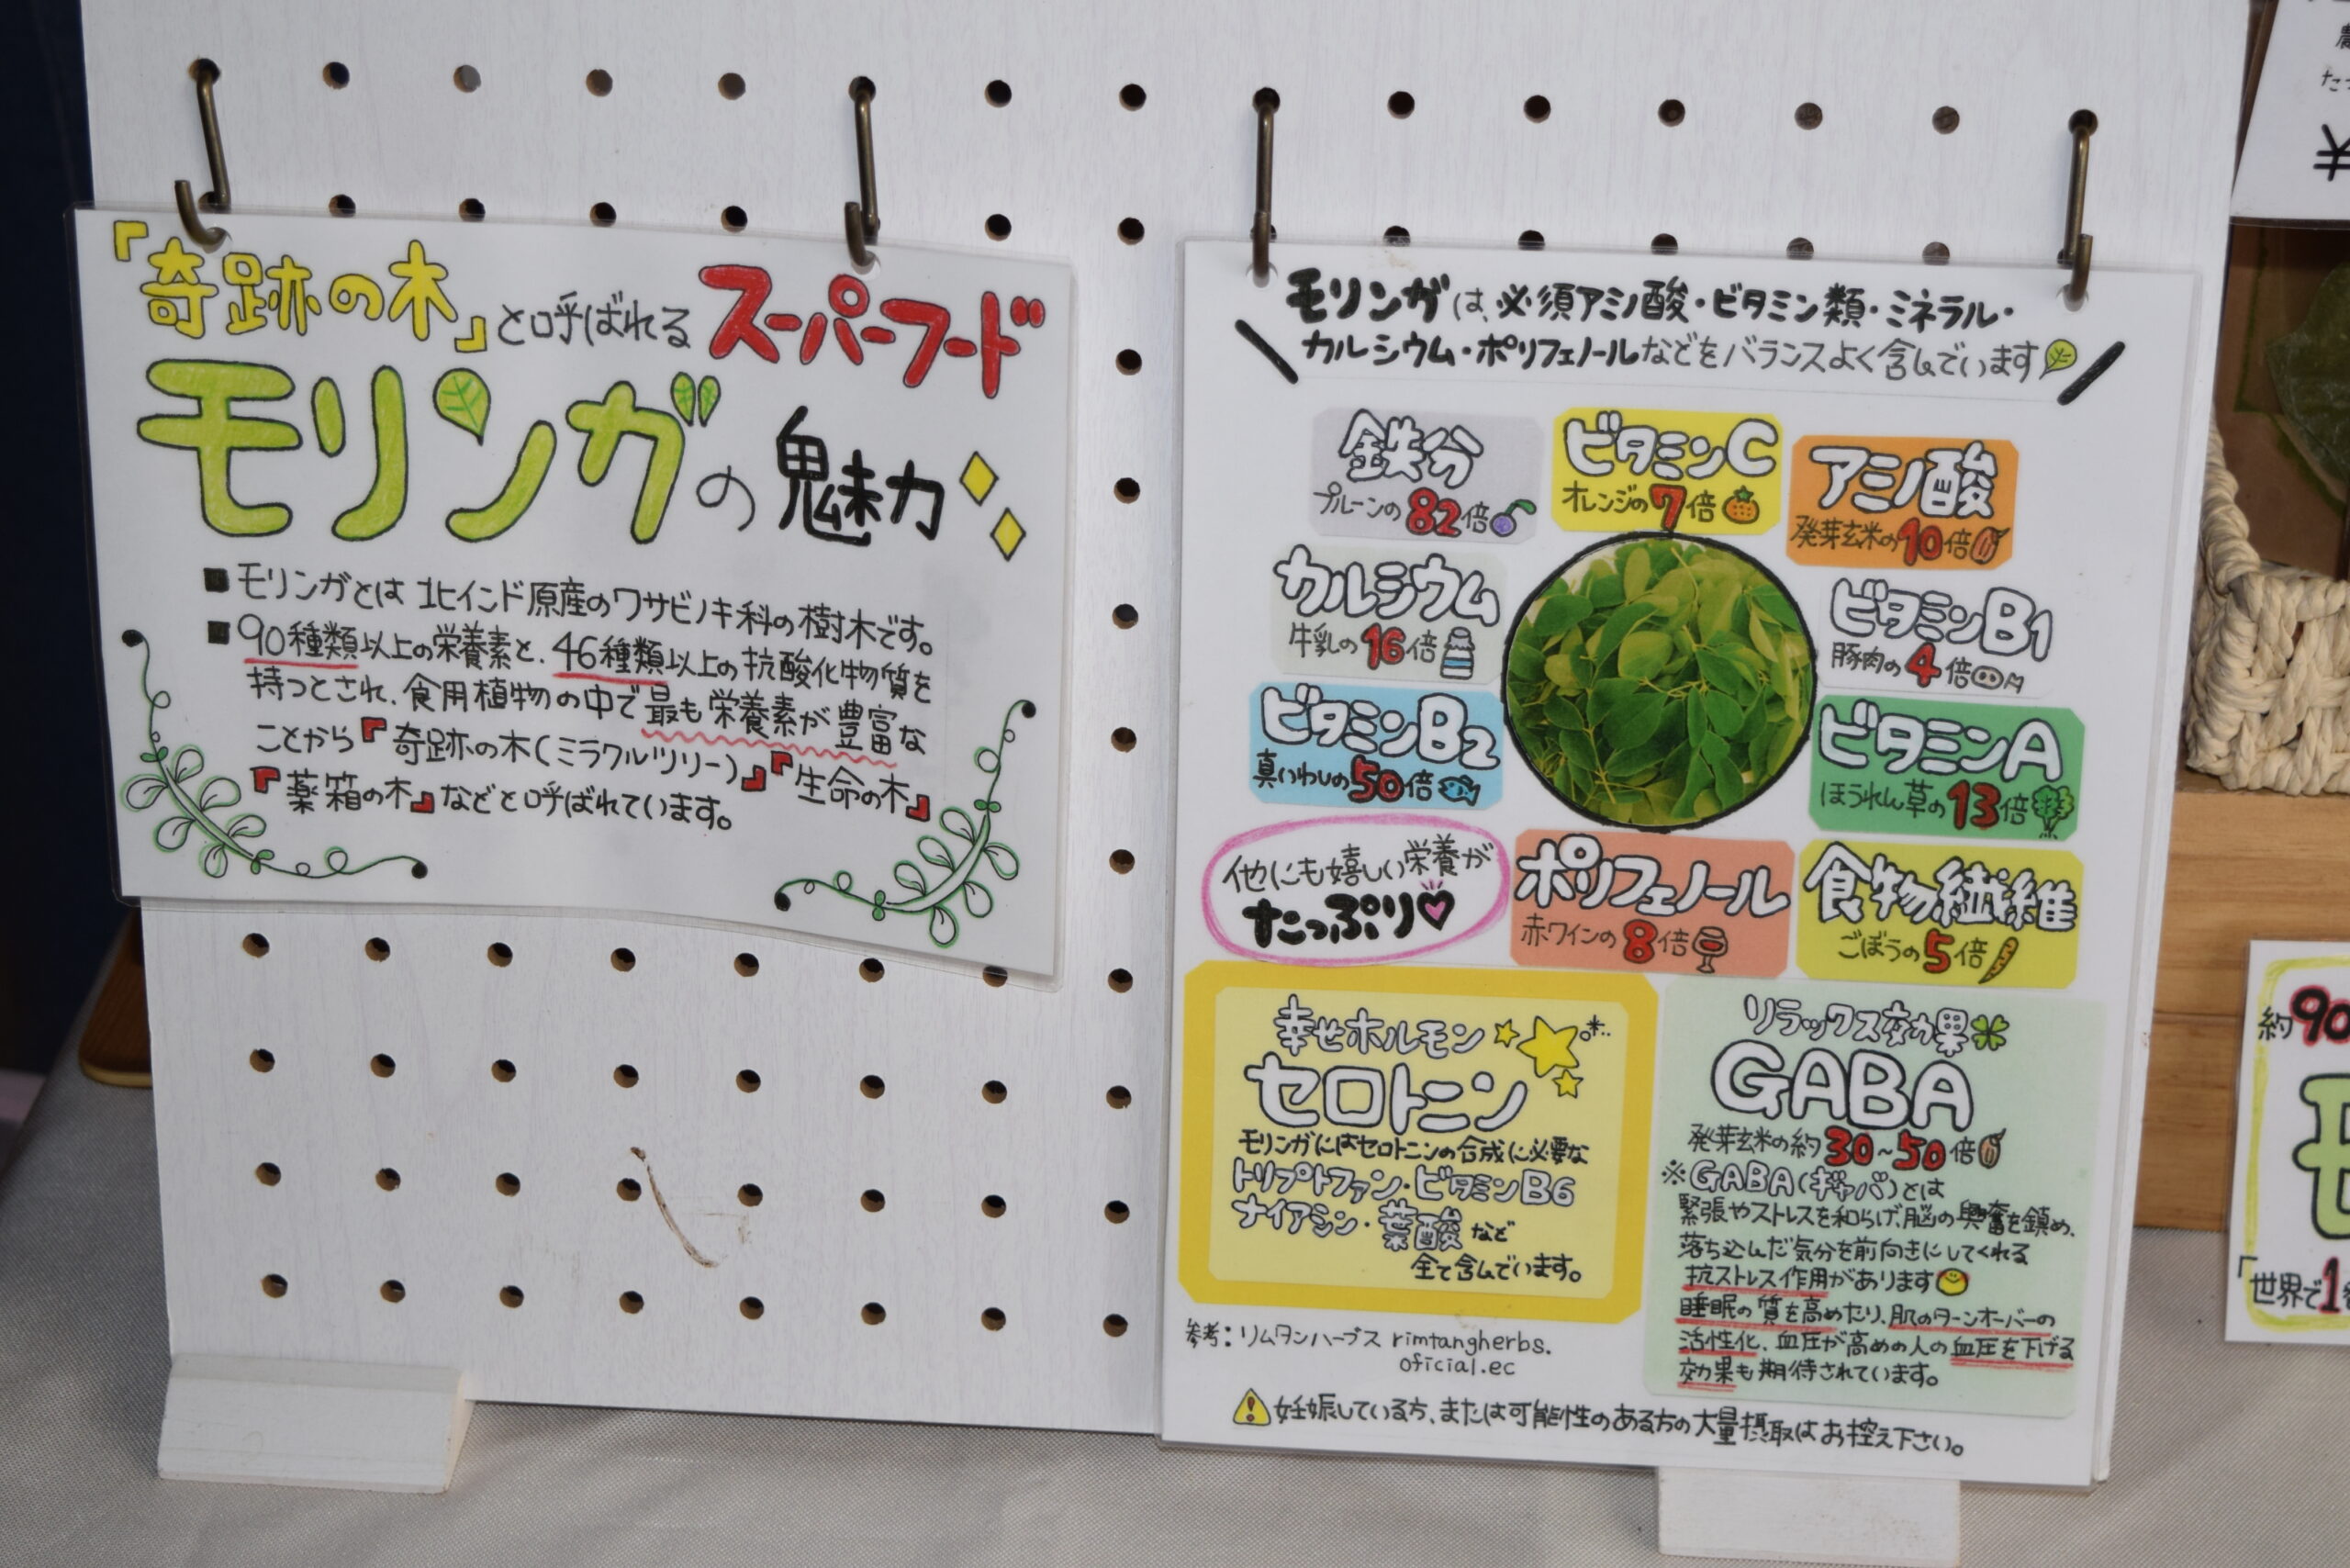 「奇跡の木」と呼ばれるスーパーフード
モリンガの魅力
■モリンガとは北インド原産のワサビノキ科の樹木です。
■90種類以上の栄養素と、46種類以上の抗酸化物質を
持つとされ、食用植物の中で最も栄養素が豊富な
ことから『奇跡の木(ミラクルツリー)』『生命の木』
『薬箱の木』などと呼ばれています。
モリンガは、必須アミノ酸・ビタミン類・ミネラル・
カルシウム・ポリフェノールなどをバランスよく含んでいます
鉄分
プルーンの82倍
ビタミンC
オレンジの7倍
アミノ酸
発芽玄米の10倍
カルシウム
牛乳の16倍
ビタミンB1
豚肉の4倍
ビタミンB2
真いわしの50倍
ビタミンA
ほうれん草の13倍
他にも嬉しい栄養が
たっぷり♡
ポリフェノール
赤ワインの8倍
食物繊維
ごぼうの5倍
幸せホルモン
セロトニン
モリンガにはセロトニンの合成に必要な
トリプトファン・ビタミンB6
ナイアシン・葉酸など
全て含んでいます。
リラックス効果
GABA
発芽玄米の約30~50倍
※GABA(ギャバ)とは
緊張やストレスを和らげ、脳の興奮を鎮め、
落ち込んだ気分を前向きにしてくれる
抗ストレス作用があります
睡眠の質を高めたり、肌のターンオーバーの
活性化、血圧が高めの人の血圧を下げる
効果も期待されています。
参考:リムタンハーブス rimtangherbs.
oficial.ec
妊娠している方、または可能性のある方の大量摂取はお控え下さい。
¥
約90
「世界で1